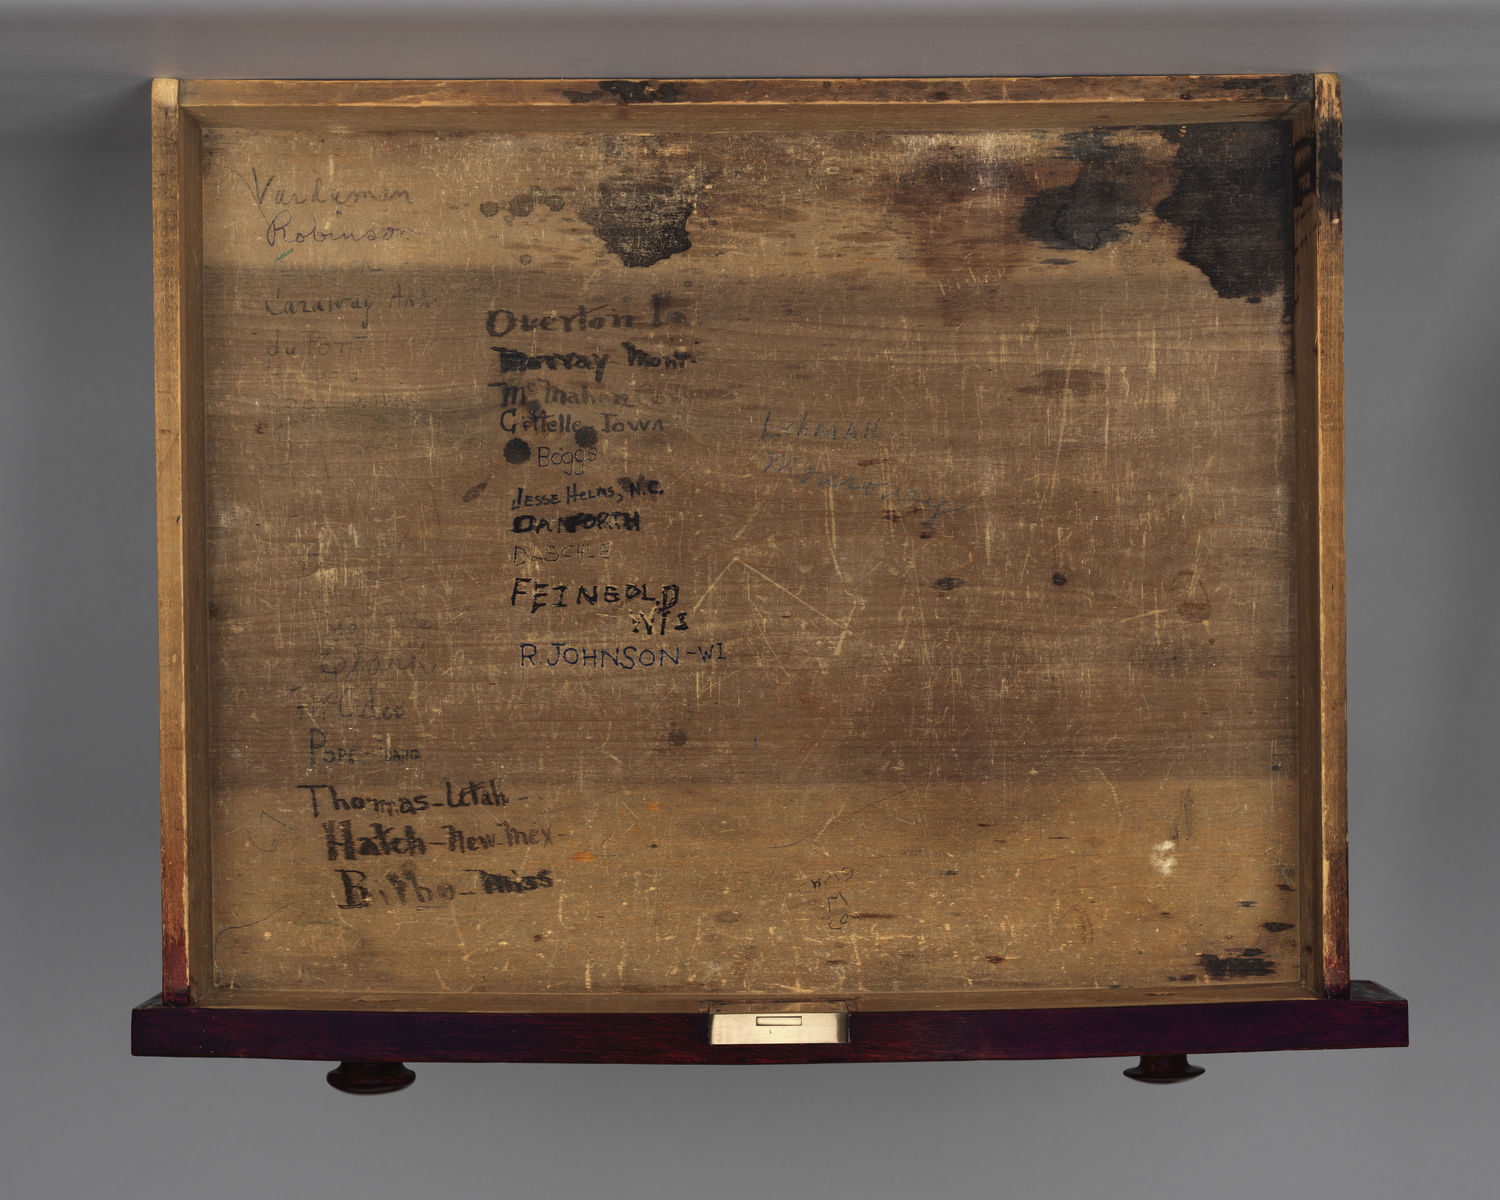 Vardaman
Robinson
Caraway Ark
du Pont
Overton La
Murray Mont
McMahon
Gillette Iowa
Boggs
JESSE HELMS, N.C.
DANFORTH
DASCHLE
FEINGOLD
WIS
R. JOHNSON-WI
LEHMAN
Monroney
McAdoo
POPE-IDAHO
Thomas-Utah-
Hatch-New-Mex-
Bilbo-Miss